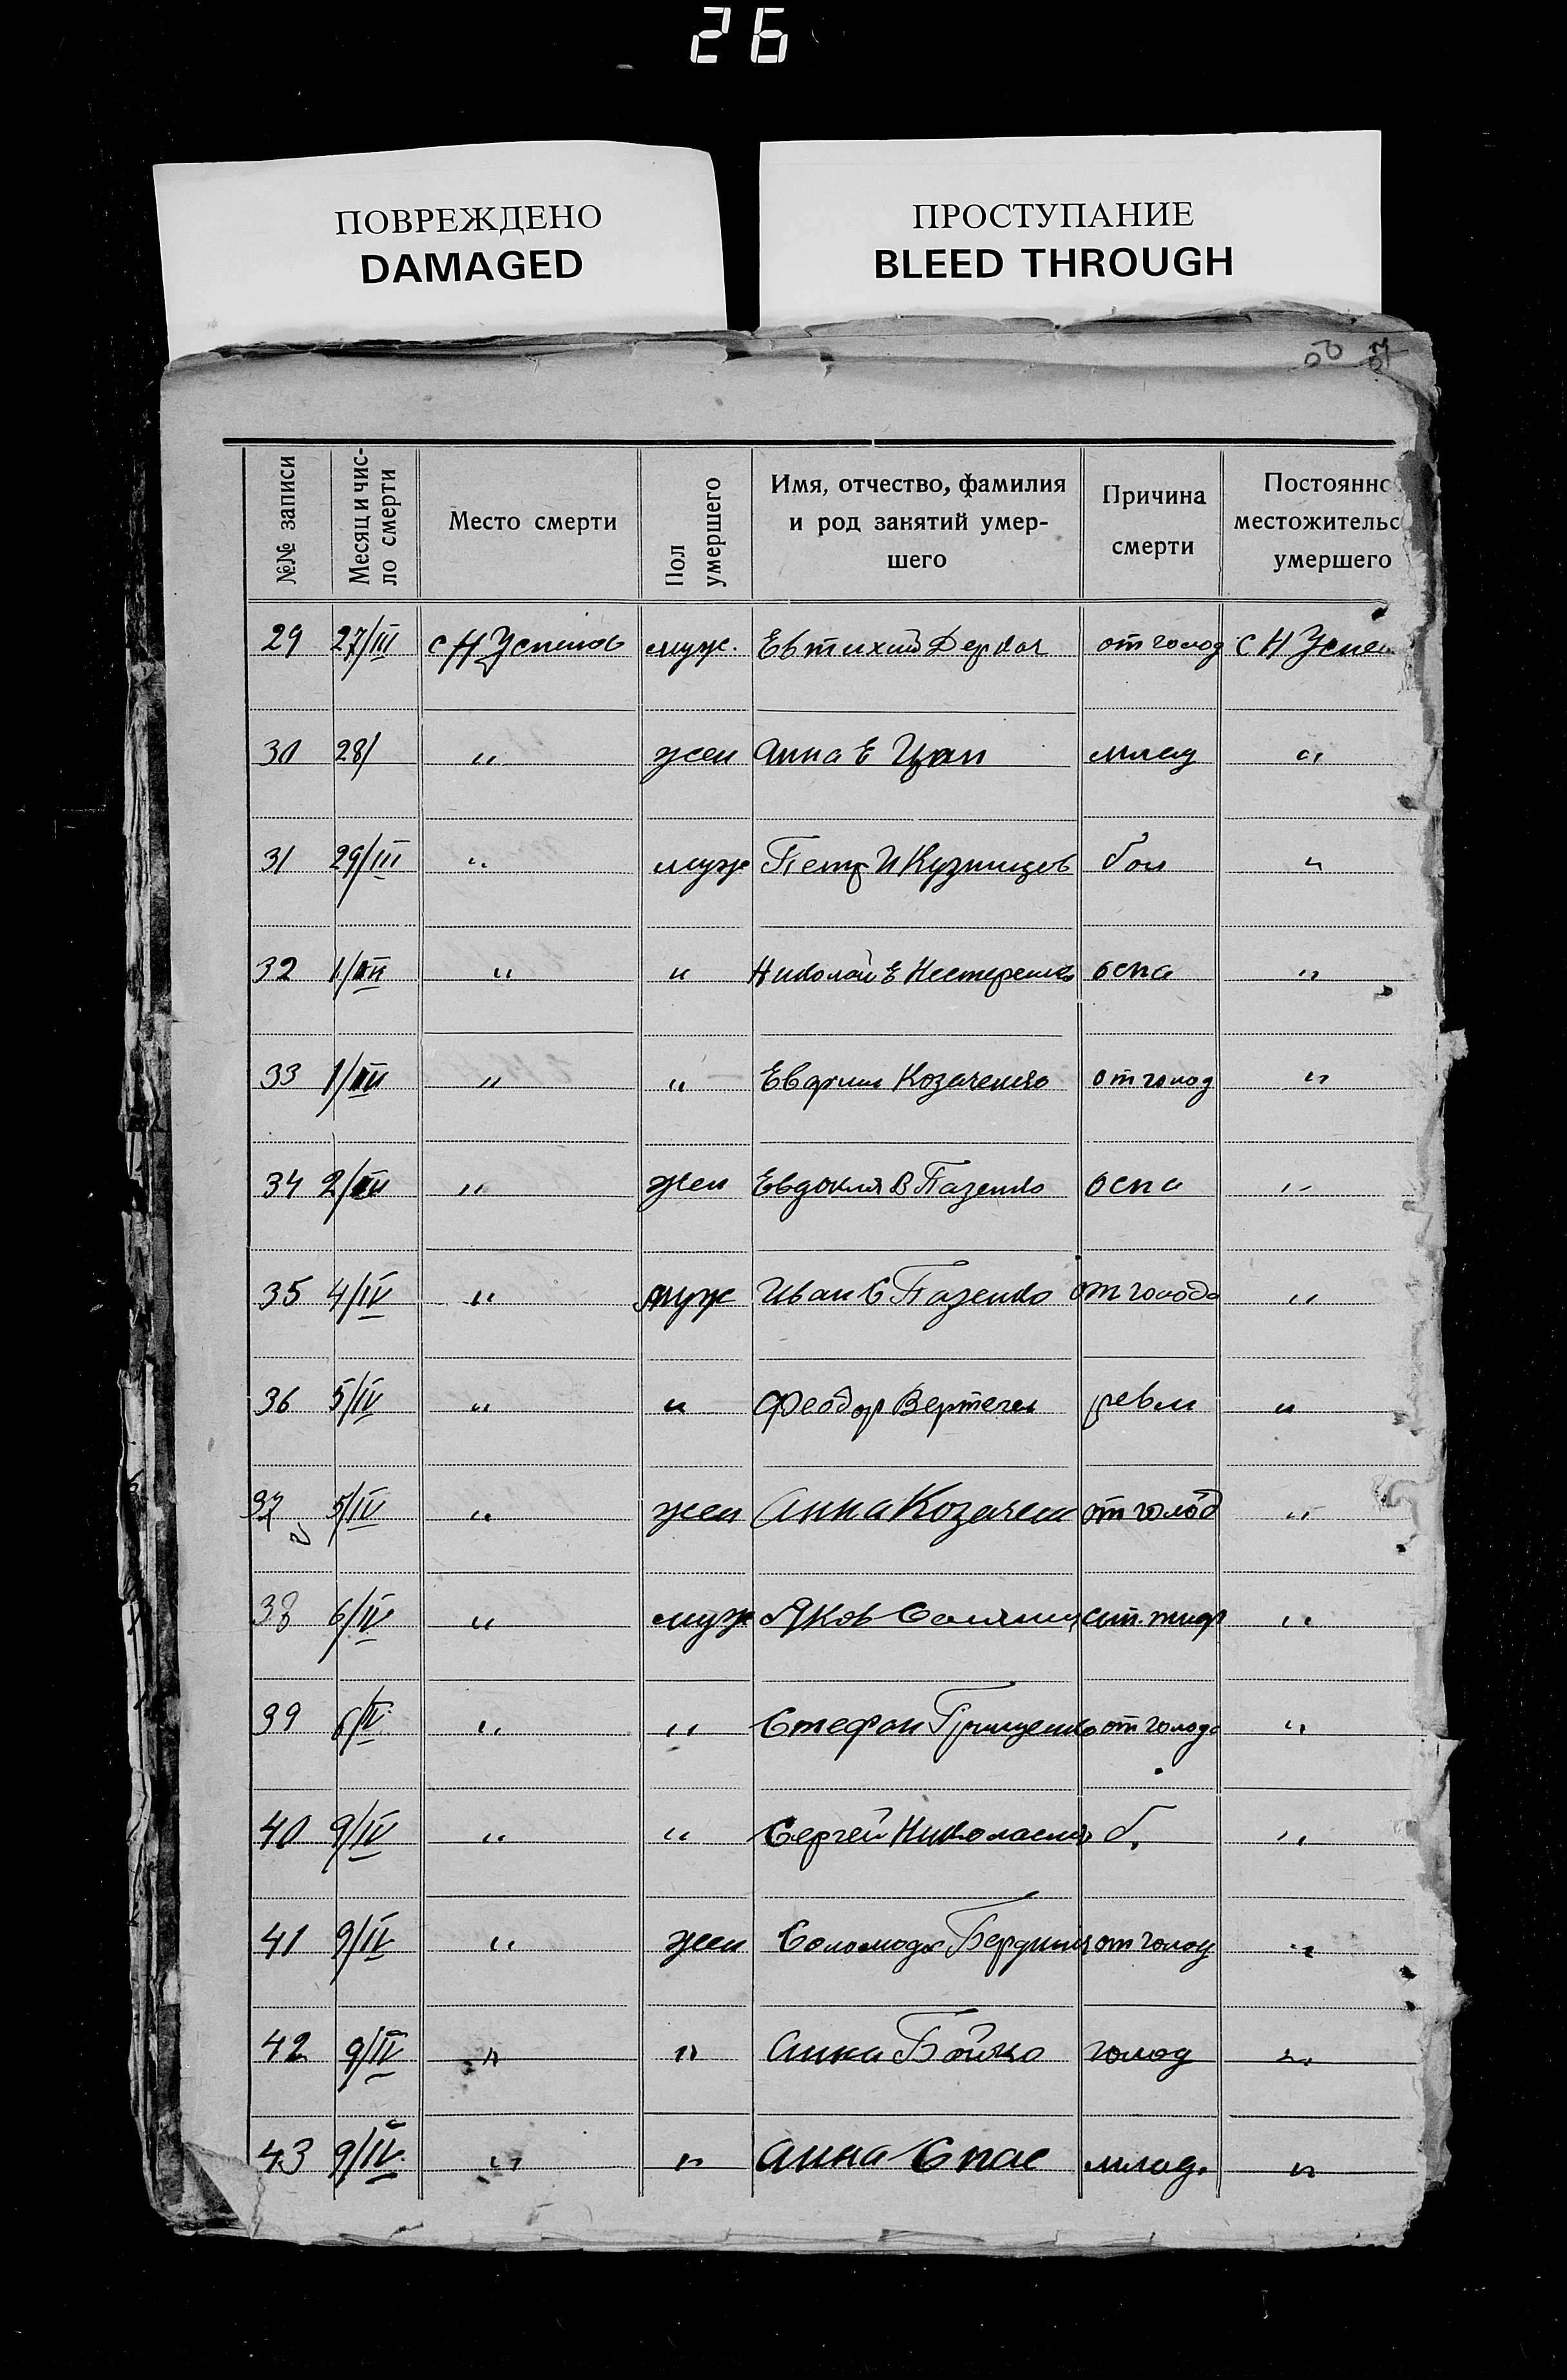 26
ПОВРЕЖДЕНО
DAMAGED
ПРОСТУПАНИЕ
BLEED THROUGH
№№ записи
Месяц и чис-
ло смерти
Место смерти
Пол
умершего
Имя, отчество, фамилия
и род занятий умер-
шего
Причина
смерти
Постоянно
местожительс
умершего
29 27/III с Н Успенов муж. Евтихий Деркач от голод с Н Успен
30 28/ " жен Анна Е Цап млад "
31 29/III " муж Петр И Кузницов бол "
32 1/ " " Николай Е Нестеренко оспа "
33 1/ " " Козаченко от голод "
34 2/ " жен Евдокия В Пазенко оспа "
35 4/IV " муж Иван С Пазенко от голода "
36 5/IV " " Феодор Вертегел ревм "
37 5/IV " жен Анна Козачен от голод "
38 6/IV " муж Яков сып. тиф "
39 6/IV " " Стефан Грищенко от голода "
40 9/IV " " Сергей б. "
41 9/IV " жен от голод "
42 9/IV " " Анна Бойко голод "
43 9/IV " " Анна Спас млад. "